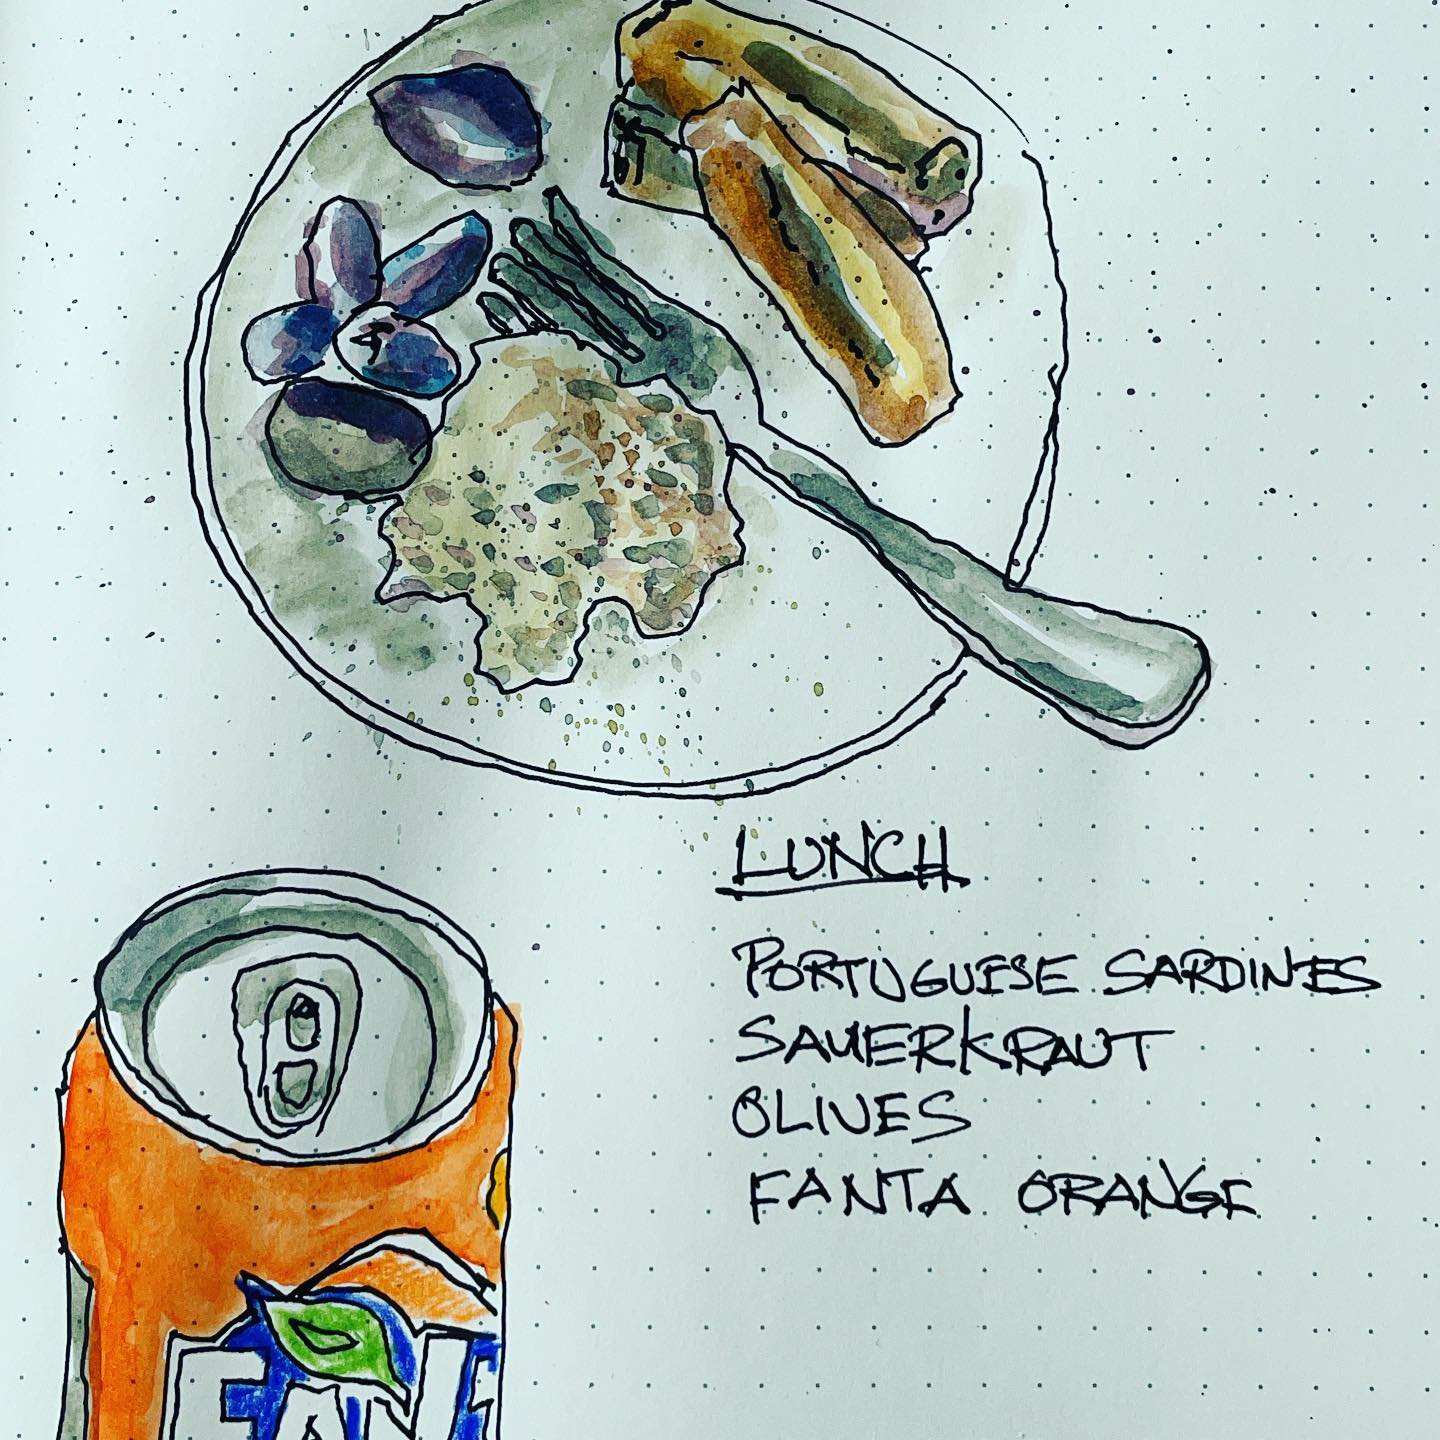 LUNCH
PORTUGUESE SARDINES
SAUERKRAUT
OLIVES
FANTA ORANGE
FANT